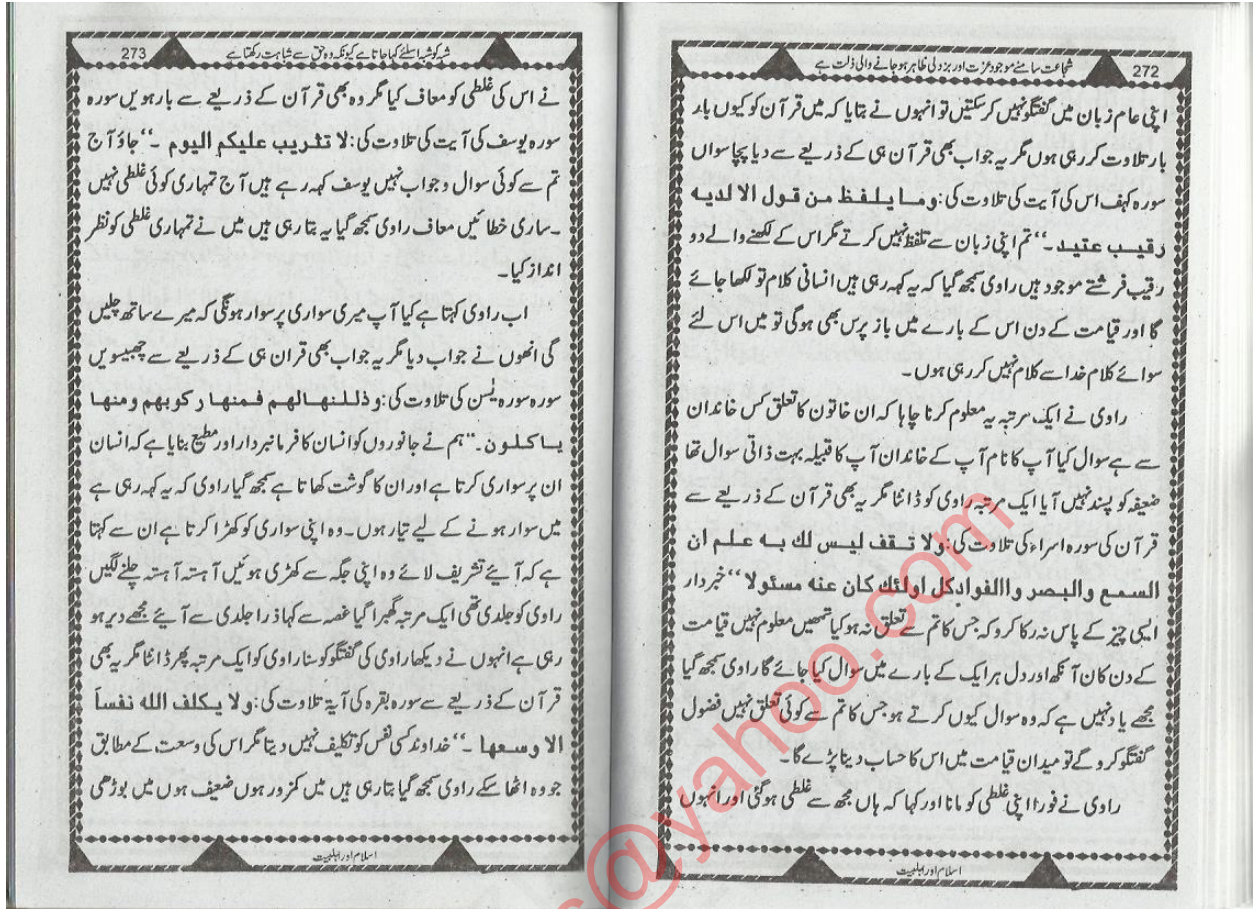 272
شجاعت سامنے موجود عزت اور بزدلی ظاہر ہو جانے والی ذلت ہے
اپنی عام زبان میں گفتگو نہیں کر سکتیں تو انہوں نے بتایا کہ میں قرآن کو کیوں بار
بار تلاوت کر رہی ہوں مگر یہ جواب بھی قرآن ہی کے ذریعے سے دیا پچاسواں
سورہ کہف اس کی آیت کی تلاوت کی: وما یلفظ من قول الا لدیه
رقیب عتید۔‘‘ تم اپنی زبان سے تلفظ نہیں کرتے مگر اس کے لکھنے والے دو
رقیب فرشتے موجود ہیں راوی سمجھ گیا کہ یہ کہہ رہی ہیں انسانی کلام تو لکھا جائے
گا اور قیامت کے دن اس کے بارے میں باز پرس بھی ہوگی تو میں اس لئے
سوائے کلام خدا سے کلام نہیں کر رہی ہوں۔
راوی نے ایک مرتبہ یہ معلوم کرنا چاہا کہ ان خاتون کا تعلق کس خاندان
سے ہے سوال کیا آپ کا نام آپ کے خاندان آپ کا قبیلہ بہت ذاتی سوال تھا
ضعیفہ کو پسند نہیں آیا ایک مرتبہ راوی کو ڈانٹا مگر یہ بھی قرآن کے ذریعے سے
قرآن کی سورہ اسراء کی تلاوت کی: ولا تقف لیس لك به علم ان
السمع والبصر واالفوادکل اولئك کان عنه مسئولا ‘‘خبردار
ایسی چیز کے پاس نہ رکا کرو کہ جس کا تم سے تعلق نہ ہو کیا تمھیں معلوم نہیں قیامت
کے دن کان آنکھ اور دل ہر ایک کے بارے میں سوال کیا جائے گا راوی سمجھ گیا
مجھے یاد نہیں ہے کہ وہ سوال کیوں کرتے ہو جس کا تم سے کوئی تعلق نہیں فضول
گفتگو کرو گے تو میدان قیامت میں اس کا حساب دینا پڑے گا۔
راوی نے فورا اپنی غلطی کو مانا اور کہا کہ ہاں مجھ سے غلطی ہو گئی اور انہوں
اسلام اور اہلبیت
273
شبہ کو شبہ اسلئے کہا جاتا ہے کیونکہ وہ حق سے شباہت رکھتا ہے
نے اس کی غلطی کو معاف کیا مگر وہ بھی قرآن کے ذریعے سے بارہویں سورہ
سورہ یوسف کی آیت کی تلاوت کی: لا تثریب علیکم الیوم ۔‘‘ جاؤ آج
تم سے کوئی سوال و جواب نہیں یوسف کہہ رہے ہیں آج تمہاری کوئی غلطی نہیں
۔ساری خطائیں معاف راوی سمجھ گیا یہ بتا رہی ہیں میں نے تمہاری غلطی کو نظر
انداز کیا۔
اب راوی کہتا ہے کیا آپ میری سواری پر سوار ہونگی کہ میرے ساتھ چلیں
گی انھوں نے جواب دیا مگر یہ جواب بھی قران ہی کے ذریعے سے چھبیسویں
سورہ سورہ یٰسن کی تلاوت کی: وذللنهالهم فمنها رکوبهم ومنها
یاکلون۔‘‘ ہم نے جانوروں کو انسان کا فرمانبردار اور مطیع بنایا ہے کہ انسان
ان پر سواری کرتا ہے اور ان کا گوشت کھاتا ہے سمجھ گیا راوی کہ یہ کہہ رہی ہے
میں سوار ہونے کے لیے تیار ہوں۔ وہ اپنی سواری کو کھڑا کرتا ہے ان سے کہتا
ہے کہ آیئے تشریف لائے وہ اپنی جگہ سے کھڑی ہوئیں آہستہ آہستہ چلنے لگیں
راوی کو جلدی تھی ایک مرتبہ گھبرا گیا غصہ سے کہا ذرا جلدی سے آیئے مجھے دیر ہو
رہی ہے انہوں نے دیکھا راوی کی گفتگو کو سنا راوی کو ایک مرتبہ پھر ڈانٹا مگر یہ بھی
قرآن کے ذریعے سے سورہ بقرہ کی آیۃ تلاوت کی: ولا یکلف الله نفساً
الا وسعها ۔‘‘ خداوند کسی نفس کو تکلیف نہیں دیتا مگر اس کی وسعت کے مطابق
جو وہ اٹھا سکے راوی سمجھ گیا بتا رہی ہیں میں کمزور ہوں ضعیف ہوں میں بوڑھی
اسلام اور اہلبیت
s@yahoo.com